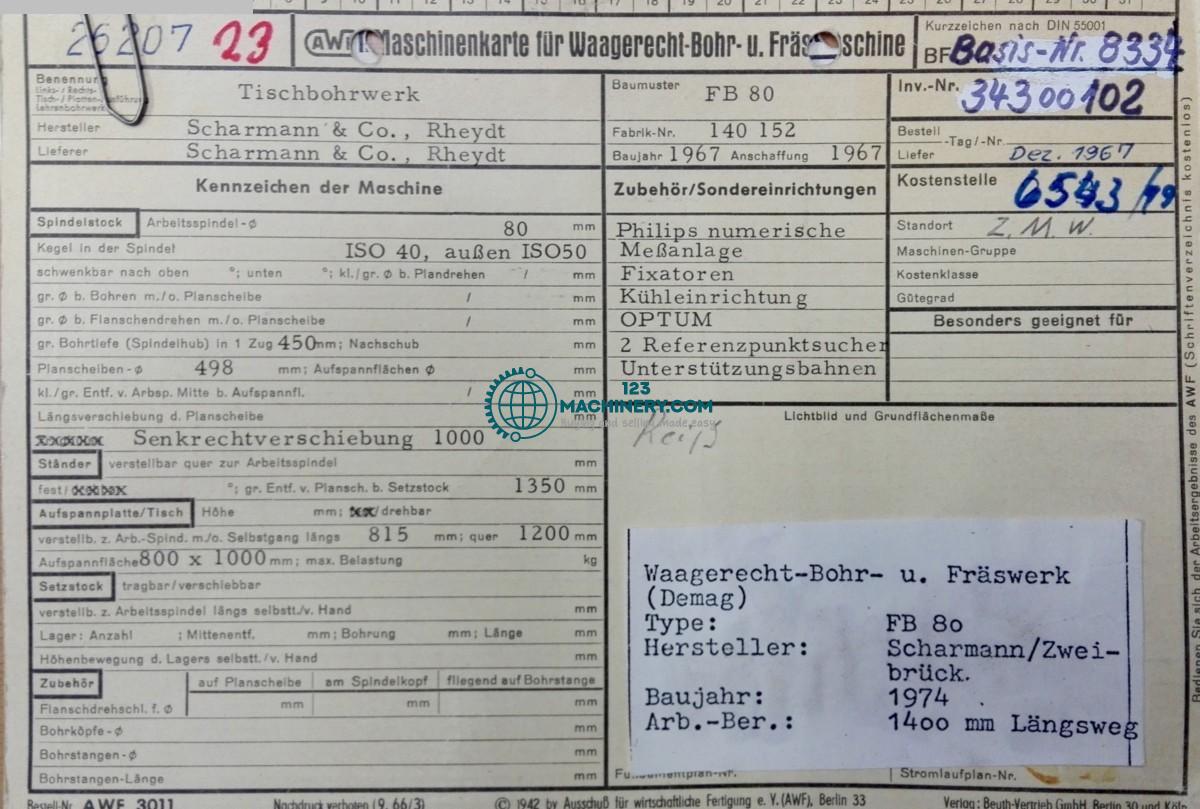 26207 23
AWF Maschinenkarte für Waagerecht-Bohr- u.
Kurzzeichen nach DIN 55001
BF Basis-Nr. 8334
Benennung
Links- / Rechts-
Tisch- / Platten-
Lehrenbohrwerk
Tischbohrwerk
Hersteller Scharmann & Co., Rheydt
Lieferer Scharmann & Co., Rheydt
Baumuster FB 80
Fabrik-Nr. 140 152
Baujahr 1967 Anschaffung 1967
Inv.-Nr. 34300102
Bestell
Liefer -Tag/-Nr. Dez. 1967
Kostenstelle 6543/
Standort Z. M. W.
Maschinen-Gruppe
Kostenklasse
Gütegrad
Besonders geeignet für
Kennzeichen der Maschine
Spindelstock Arbeitsspindel-⌀ 80 mm
Kegel in der Spindel ISO 40, außen ISO50
schwenkbar nach oben °; unten °; kl./gr. ⌀ b. Plandrehen / mm
gr. ⌀ b. Bohren m./o. Planscheibe / mm
gr. ⌀ b. Flanschendrehen m./o. Planscheibe / mm
gr. Bohrtiefe (Spindelhub) in 1 Zug 450 mm; Nachschub mm
Planscheiben-⌀ 498 mm; Aufspannflächen ⌀ mm
kl./gr. Entf. v. Arbsp. Mitte b. Aufspannfl. / mm
Längsverschiebung d. Planscheibe mm
Senkrechtverschiebung 1000
Ständer verstellbar quer zur Arbeitsspindel mm
fest/ °; gr. Entf. v. Plansch. b. Setzstock 1350 mm
Aufspannplatte/Tisch Höhe mm; /drehbar
verstellb. z. Arb.-Spind. m./o. Selbstgang längs 815 mm; quer 1200 mm
Aufspannfläche 800 x 1000 mm; max. Belastung kg
Setzstock tragbar/verschiebbar
verstellb. z. Arbeitsspindel längs selbstt./v. Hand mm
Lager: Anzahl ; Mittenentf. mm; Bohrung mm; Länge mm
Höhenbewegung d. Lagers selbstt./v. Hand mm
Zubehör auf Planscheibe am Spindelkopf fliegend auf Bohrstange
Flanschdrehschl. f. ⌀ mm mm mm
Bohrköpfe-⌀ mm
Bohrstangen-⌀ mm
Bohrstangen-Länge mm
Zubehör/Sondereinrichtungen
Philips numerische
Meßanlage
Fixatoren
Kühleinrichtung
OPTUM
2 Referenzpunktsucher
Unterstützungsbahnen
123
MACHINERY.COM
Buying and selling made easy
Lichtbild und Grundflächenmaße
Waagerecht-Bohr- u. Fräswerk
(Demag)
Type: FB 80
Hersteller: Scharmann/Zwei-
brück.
Baujahr: 1974
Arb.-Ber.: 1400 mm Längsweg
Stromlaufplan-Nr.
Bestell-Nr. AWF 3011 Nachdruck verboten (9. 66/3) © 1942 by Ausschuß für wirtschaftliche Fertigung e. V. (AWF), Berlin 33 Verlag: Beuth-Vertrieb GmbH, Berlin 30 und Köln
Bedienen Sie sich der Arbeitsergebnisse des AWF (Schriftenverzeichnis kostenlos)